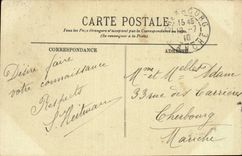 CARTE POSTALE
Tous les Pays étrangers n'acceptent pas la Correspondance au recto.
(Se renseigner à la Poste)
CORRESPONDANCE
ADRESSE
CHERBOURG
MANCHE
15 45
10
Désire faire
votre connaissance
Respects
Mme et Melles Adam
33 rue des Carrieres
Cherbourg
Manche